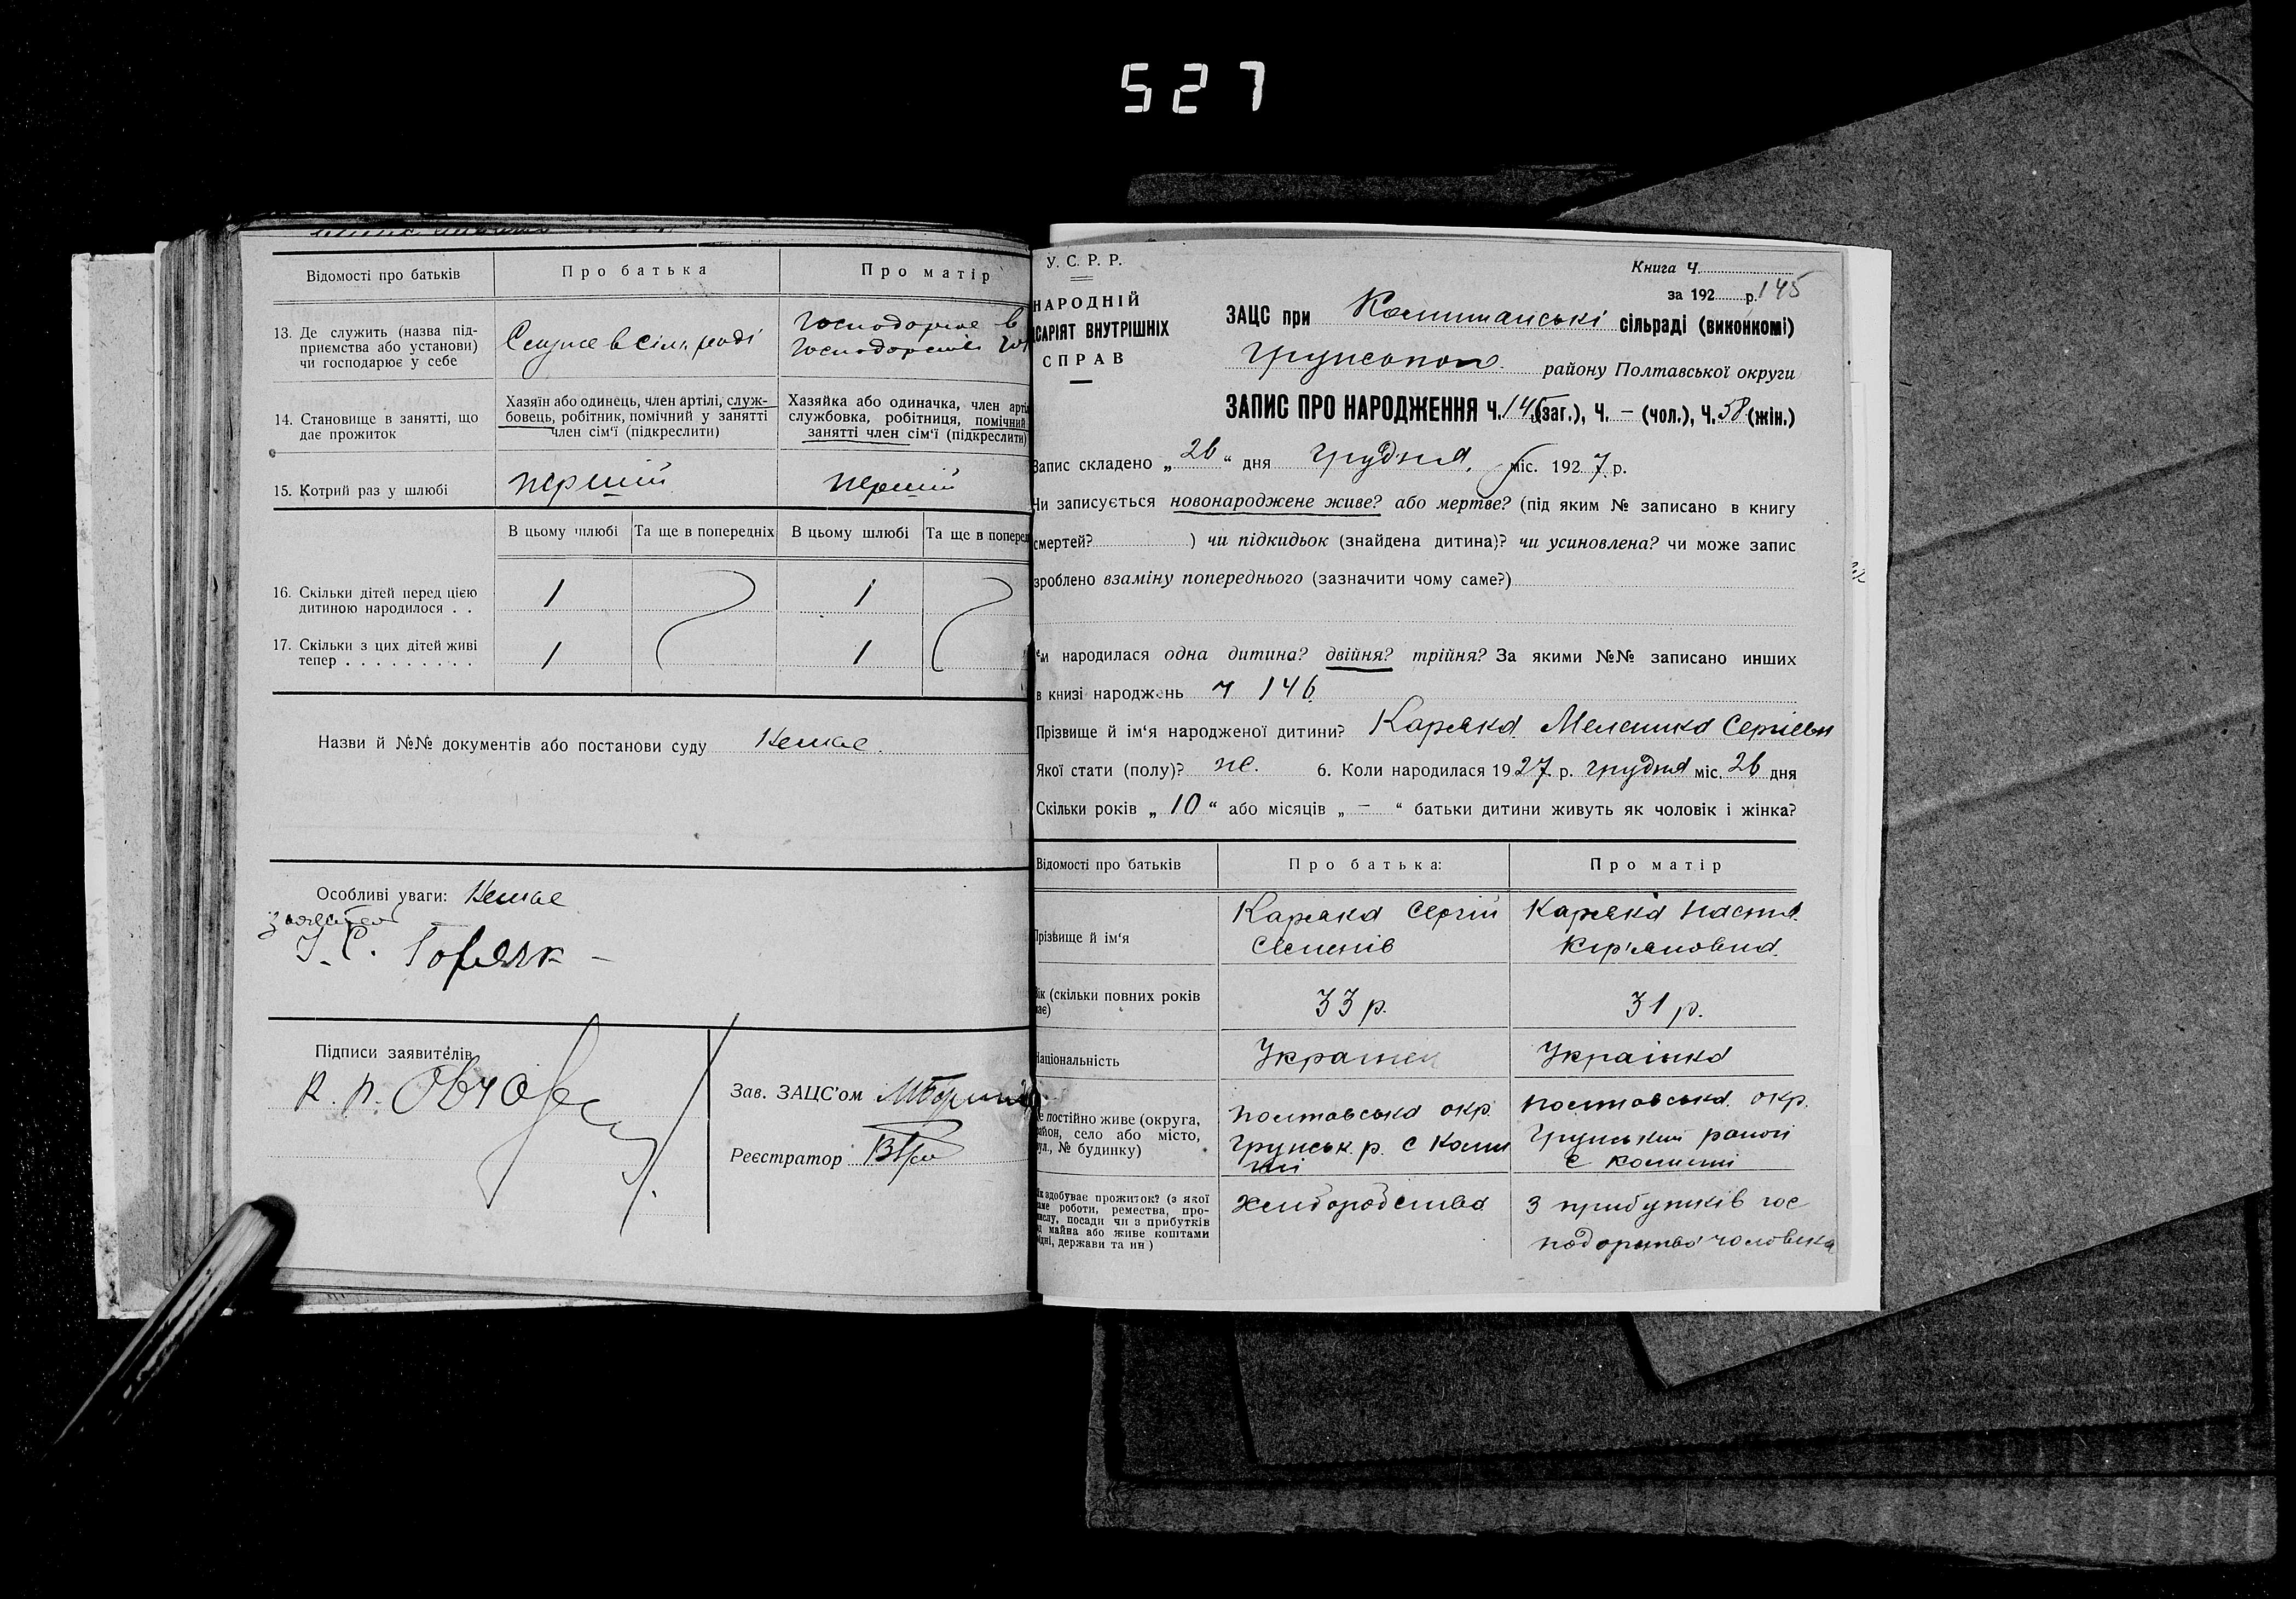 527
Відомості про батьків
Про батька
Про матір
13. Де служить (назва під-
приємства або установи)
чи господарює у себе
Служе в сіль раді
господарює в
господарстві
14. Становище в занятті, що
дає прожиток
Хазяїн або одинець, член артілі, служ-
бовець, робітник, помічний у занятті
член сім'ї (підкреслити)
Хазяйка або одиначка, член артілі
службовка, робітниця, помічний
занятті член сім'ї (підкреслити)
15. Котрий раз у шлюбі
перший
перший
В цьому шлюбі
Та ще в попередніх
В цьому шлюбі
Та ще в поперед
16. Скільки дітей перед цією
дитиною народилося . .
1
1
17. Скільки з цих дітей живі
тепер . . . . . . . . .
1
1
Назви й №№ документів або постанови суду немає.
Особливі уваги: немає
І. С. Горбяк –
Підписи заявителів
К. П.
Зав. ЗАЦС'ом
Реєстратор
У. С. Р. Р.
НАРОДНІЙ
САРІЯТ ВНУТРІШНІХ
СПРАВ
Книга Ч.
за 192 р. 145
ЗАЦС при сільраді (виконкомі)
району Полтавської округи
ЗАПИС ПРО НАРОДЖЕННЯ Ч. 145 (заг.), Ч. – (чол.), Ч. 58 (жін.)
Запис складено „ 26 “ дня грудня міс. 1927 р.
Чи записується новонароджене живе? або мертве? (під яким № записано в книгу
смертей? ) чи підкидьок (знайдена дитина)? чи усиновлена? чи може запис
зроблено взаміну попереднього (зазначити чому саме?)
народилася одна дитина? двійня? трійня? За якими №№ записано инших
в книзі народжень ч 146
Прізвище й ім'я народженої дитини? Каряка Меланка Сергіевн
Якої стати (полу)? ж. 6. Коли народилася 1927 р. грудня міс. 26 дня
Скільки років „ 10 “ або місяців „ – “ батьки дитини живуть як чоловік і жінка?
Відомості про батьків
Про батька:
Про матір
Прізвище й ім'я
Каряка Сергій
Семенів
Каряка Настя
Кір'яновна
вік (скільки повних років
має)
33 р.
31 р.
Національність
Українец
Українка
де постійно живе (округа,
район, село або місто,
вул., № будинку)
Полтавська окр.
Грунськ. р. с Ком
Полтавська окр.
Грунський район
с
Як здобуває прожиток? (з якої
саме роботи, ремества, про-
мислу, посади чи з прибутків
від майна або живе коштами
рідні, держави та ин)
Хліборобства
З прибутків гос
подарства чоловіка